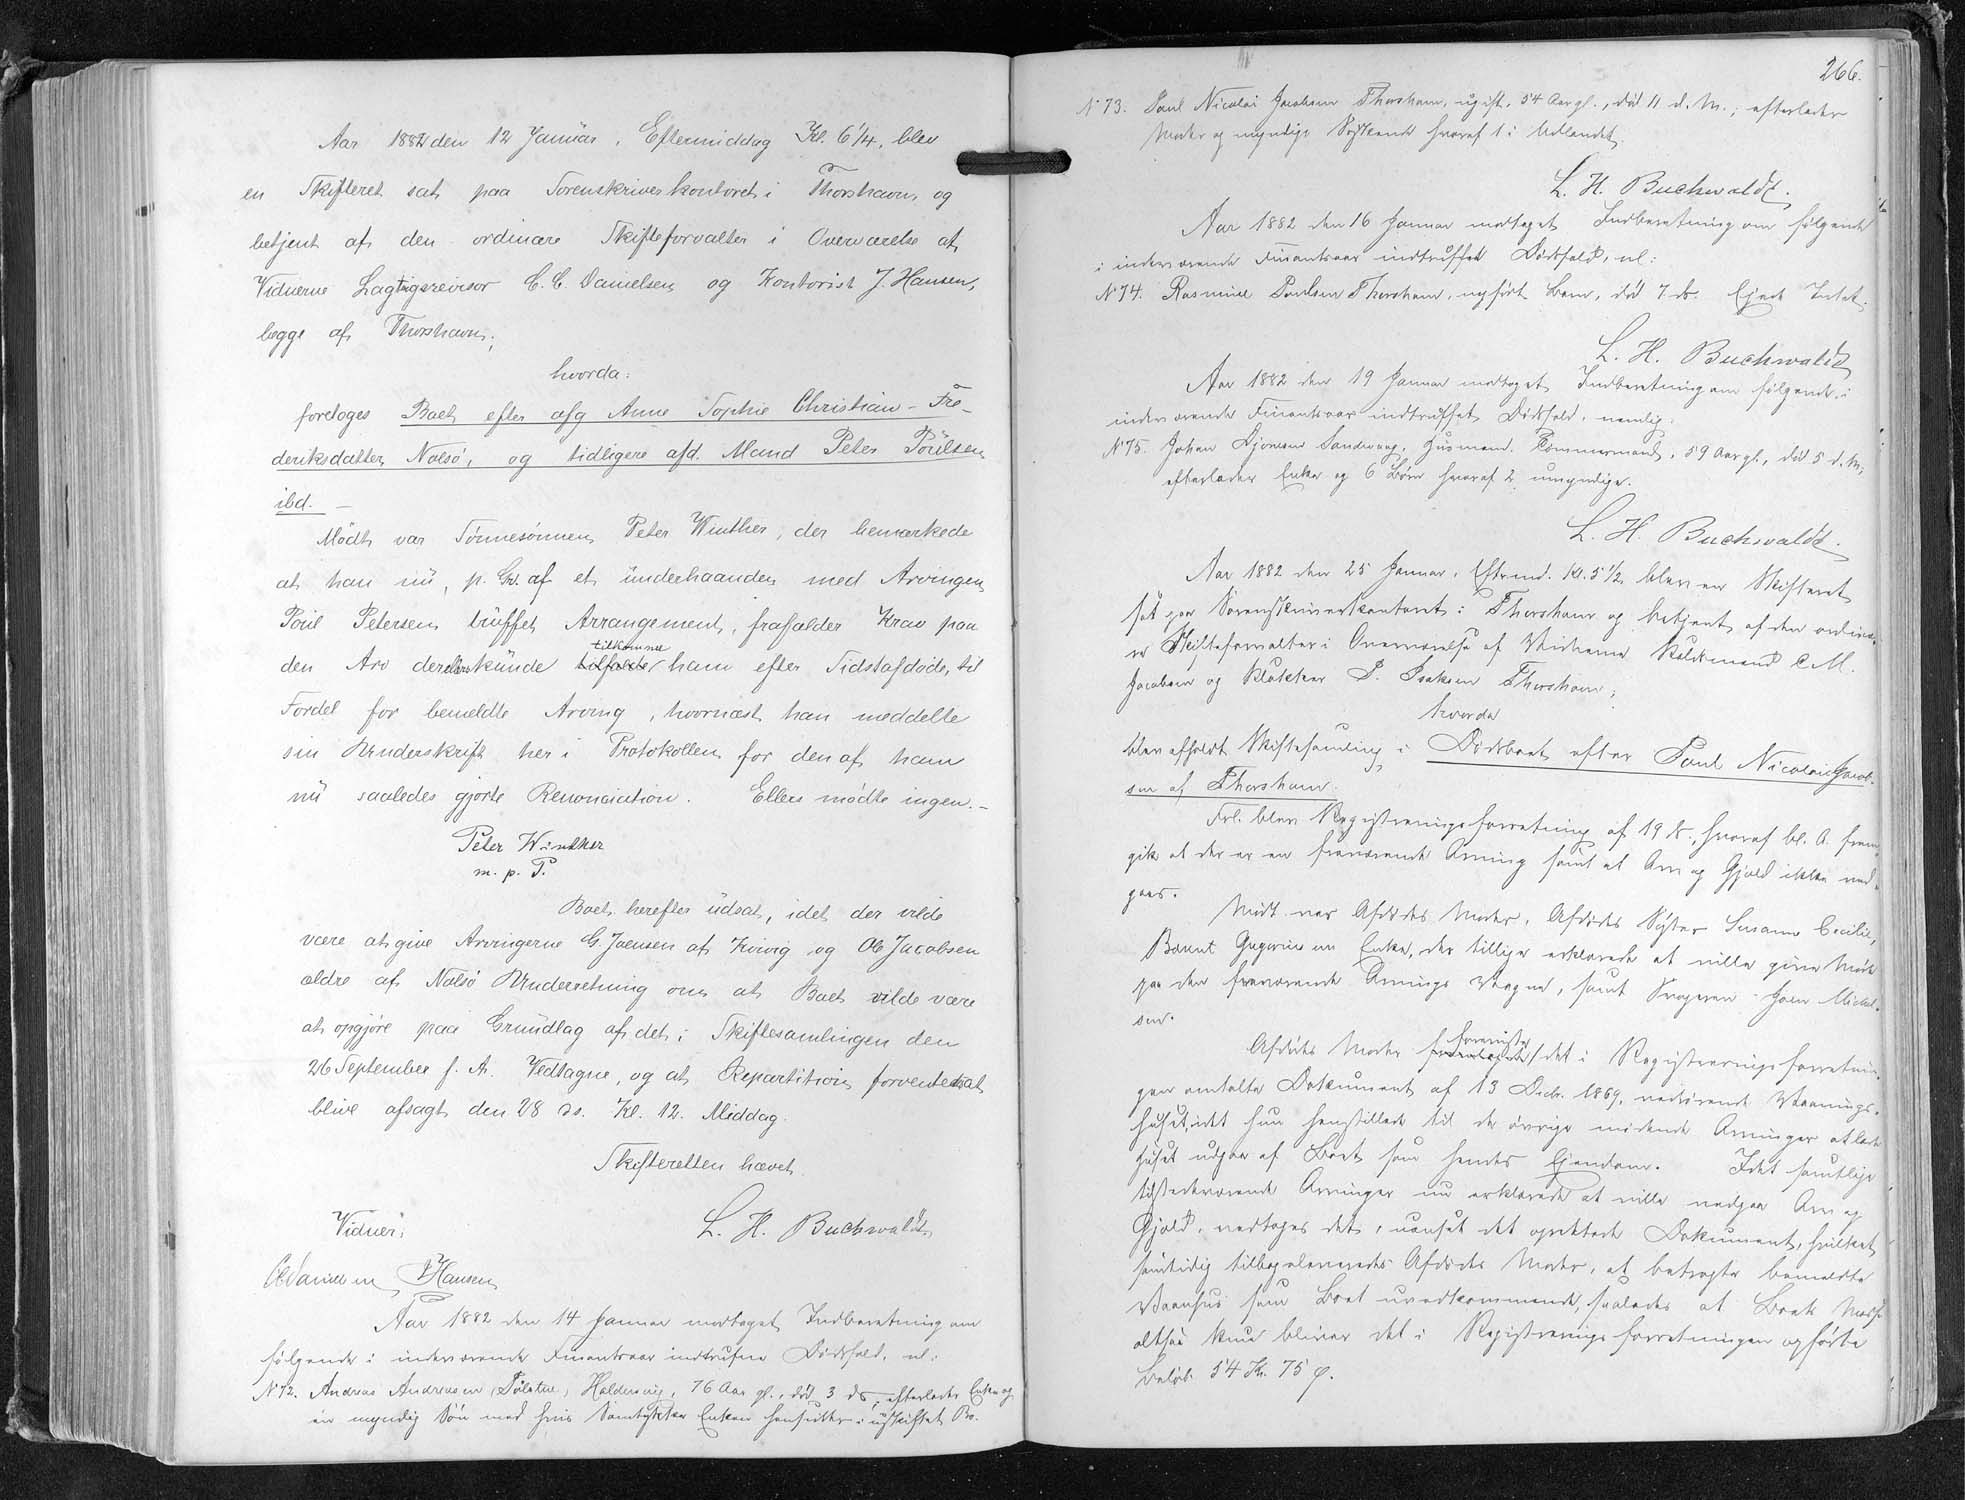 Aar 1882 den 12 Januar, Eftermiddag Kl. 6 1/4, blev
en Skifteret sat paa Sorenskriverkontoret i Thorshavn og
betjent af den ordinære Skifteforvalter i Overværelse af
Vidnerne Lagtingsrevisor C. C. Danielsen og Kontorist J. Hansen,
begge af Thorshavn,
hvorda:
foretoges Boet efter afg Anne Sophie Christian-Fre-
deriksdatter, Nolsø, og tidligere afd. Mand Peter Poulsen
ibd. –
Mødt var Sønnesønnen Peter Winther, der bemærkede
at han nu, p. Gr. af et underhaanden med Arvingen
Poul Petersen truffet Arrangement, frafalder Krav paa
tilkomme
den Arv der ellers kunde tilfalde ham efter Sidstafdøde, til
Fordel for bemeldte Arving, hvornæst han meddelte
sin Underskrift her i Protokollen for den af ham
nu saaledes gjorte Renonciation. Ellers mødte ingen. –
Peter Winther
m. p. P.
Boet herefter udsat, idet der vilde
være at give Arvingerne G. Joensen af Kvivig og Ole Jacobsen
ældre af Nolsø Underretning om at Boet vilde være
at opgjøre paa Grundlag af det i Skiftesamlingen den
26 September f. A. Vedtagne, og at Repartition forventes at
blive afsagt den 28 ds. Kl. 12. Middag.
Skifteretten hævet.
Vidner:
L. H. Buchwaldt
CCDanielsen JHansen
Aar 1882 den 14 Januar modtaget Indberetning om
følgende i indeværende Finantsaar indtrufne Dødsfald, nl:
N 72. Andreas Andreasen, Haldersvig, 76 Aar gl., død 3 ds, efterlader Enke og
en myndig Søn med hvis Samtykke Enken hensidder i uskiftet Bo.
266.
N 73. Poul Nicolai Jacobsen Thorshavn, ugift, 54 Aar gl., død 11 d. M.; efterlader
Moder og myndige Sødskende hvoraf 1 i Udlandet.
L. H. Buchwaldt.
Aar 1882 den 16 Januar modtaget Indberetning om følgende
i indeværende Finantsaar indtruffet Dødsfald, nl:
N 74. Rasmine Poulsen Thorshavn, nyfødt Barn, død 7 ds. Ejede Intet.
L. H. Buchwaldt
Aar 1882 den 19 Januar modtaget Indberetning om følgende i
indeværende Finantsaar indtruffet Dødsfald, nemlig:
N 75. Johan Djonesen Sandevaag, Husmand, Tømmermand, 59 Aar gl., død 5 d. M;
efterlader Enke og 6 Børn hvoraf 2 umyndige.
L. H. Buchwaldt.
Aar 1882 den 25 Januar, Eftermd. Kl. 5 1/2 blev en Skifteret
sat paa Sorenskriverkontoret i Thorshavn og betjent af den ordinæ-
re Skifteforvalter i Overværelse af Vidnerne C. M.
Jacobsen og P. Isaksen Thorshavn;
hvorda
blev afholdt Skiftesamling i Dødsboet efter Poul Nicolai Jacob-
sen af Thorshavn.
Frl. blev Registreringsforretning af 19 ds., hvoraf bl. A. frem-
gik at der er en fraværende Arving samt at Arv og Gjæld ikke ved-
gaaes.
Mødt var Afdødes Moder, Afdødes Søster Susanne Cecilie,
Enke, der tillige erklærede at ville give Møde
paa den fraværende Arvings Vegne, samt Svogeren Joen Michel-
sen.
foreviste
Afdødes Moder det i Registreringsforretnin-
gen omtalte Dokument af 13 Decbr. 1869, vedrørende Vaanings-
huset, idet hun henstillede til de øvrige mødende Arvinger at lade
Huset udgaa af Boet som hendes Ejendom. Idet samtlige
tilstedeværende Arvinger nu erklærede at ville vedgaa Arv og
Gjæld, vedtoges det, uanset det oprettede Dokument, hvilket
samtidig tilbageleveredes Afdødes Moder, at betragte bemeldte
Vaanhus som Boet uvedkommende, saaledes at Boets Masse
altsaa kun bliver det i Registreringsforretningen opførte
Beløb 54 Kr. 75 Ø.